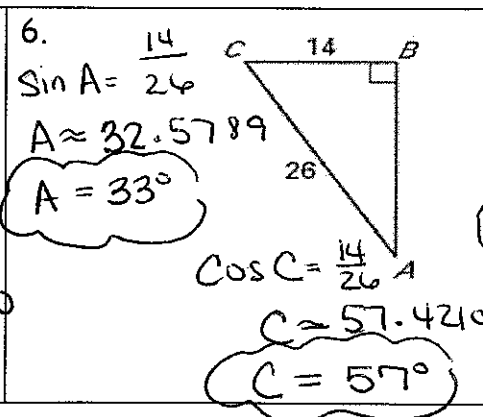 6.
sin A = 14/26
A ≈ 32.5789
A = 33°
C 14 B
26
A
Cos C = 14/26
C ≈ 57.4210
C = 57°